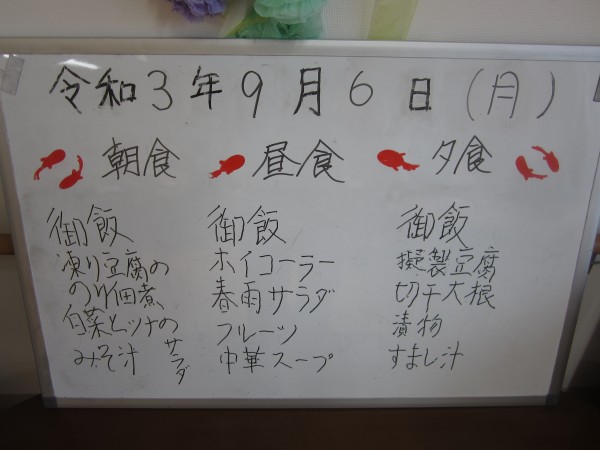 令和3年9月6日(月)
朝食
御飯
凍り豆腐の
のり佃煮
白菜とツナの
サラダ
みそ汁
昼食
御飯
ホイコーラー
春雨サラダ
フルーツ
中華スープ
夕食
御飯
擬製豆腐
切干大根
漬物
すまし汁